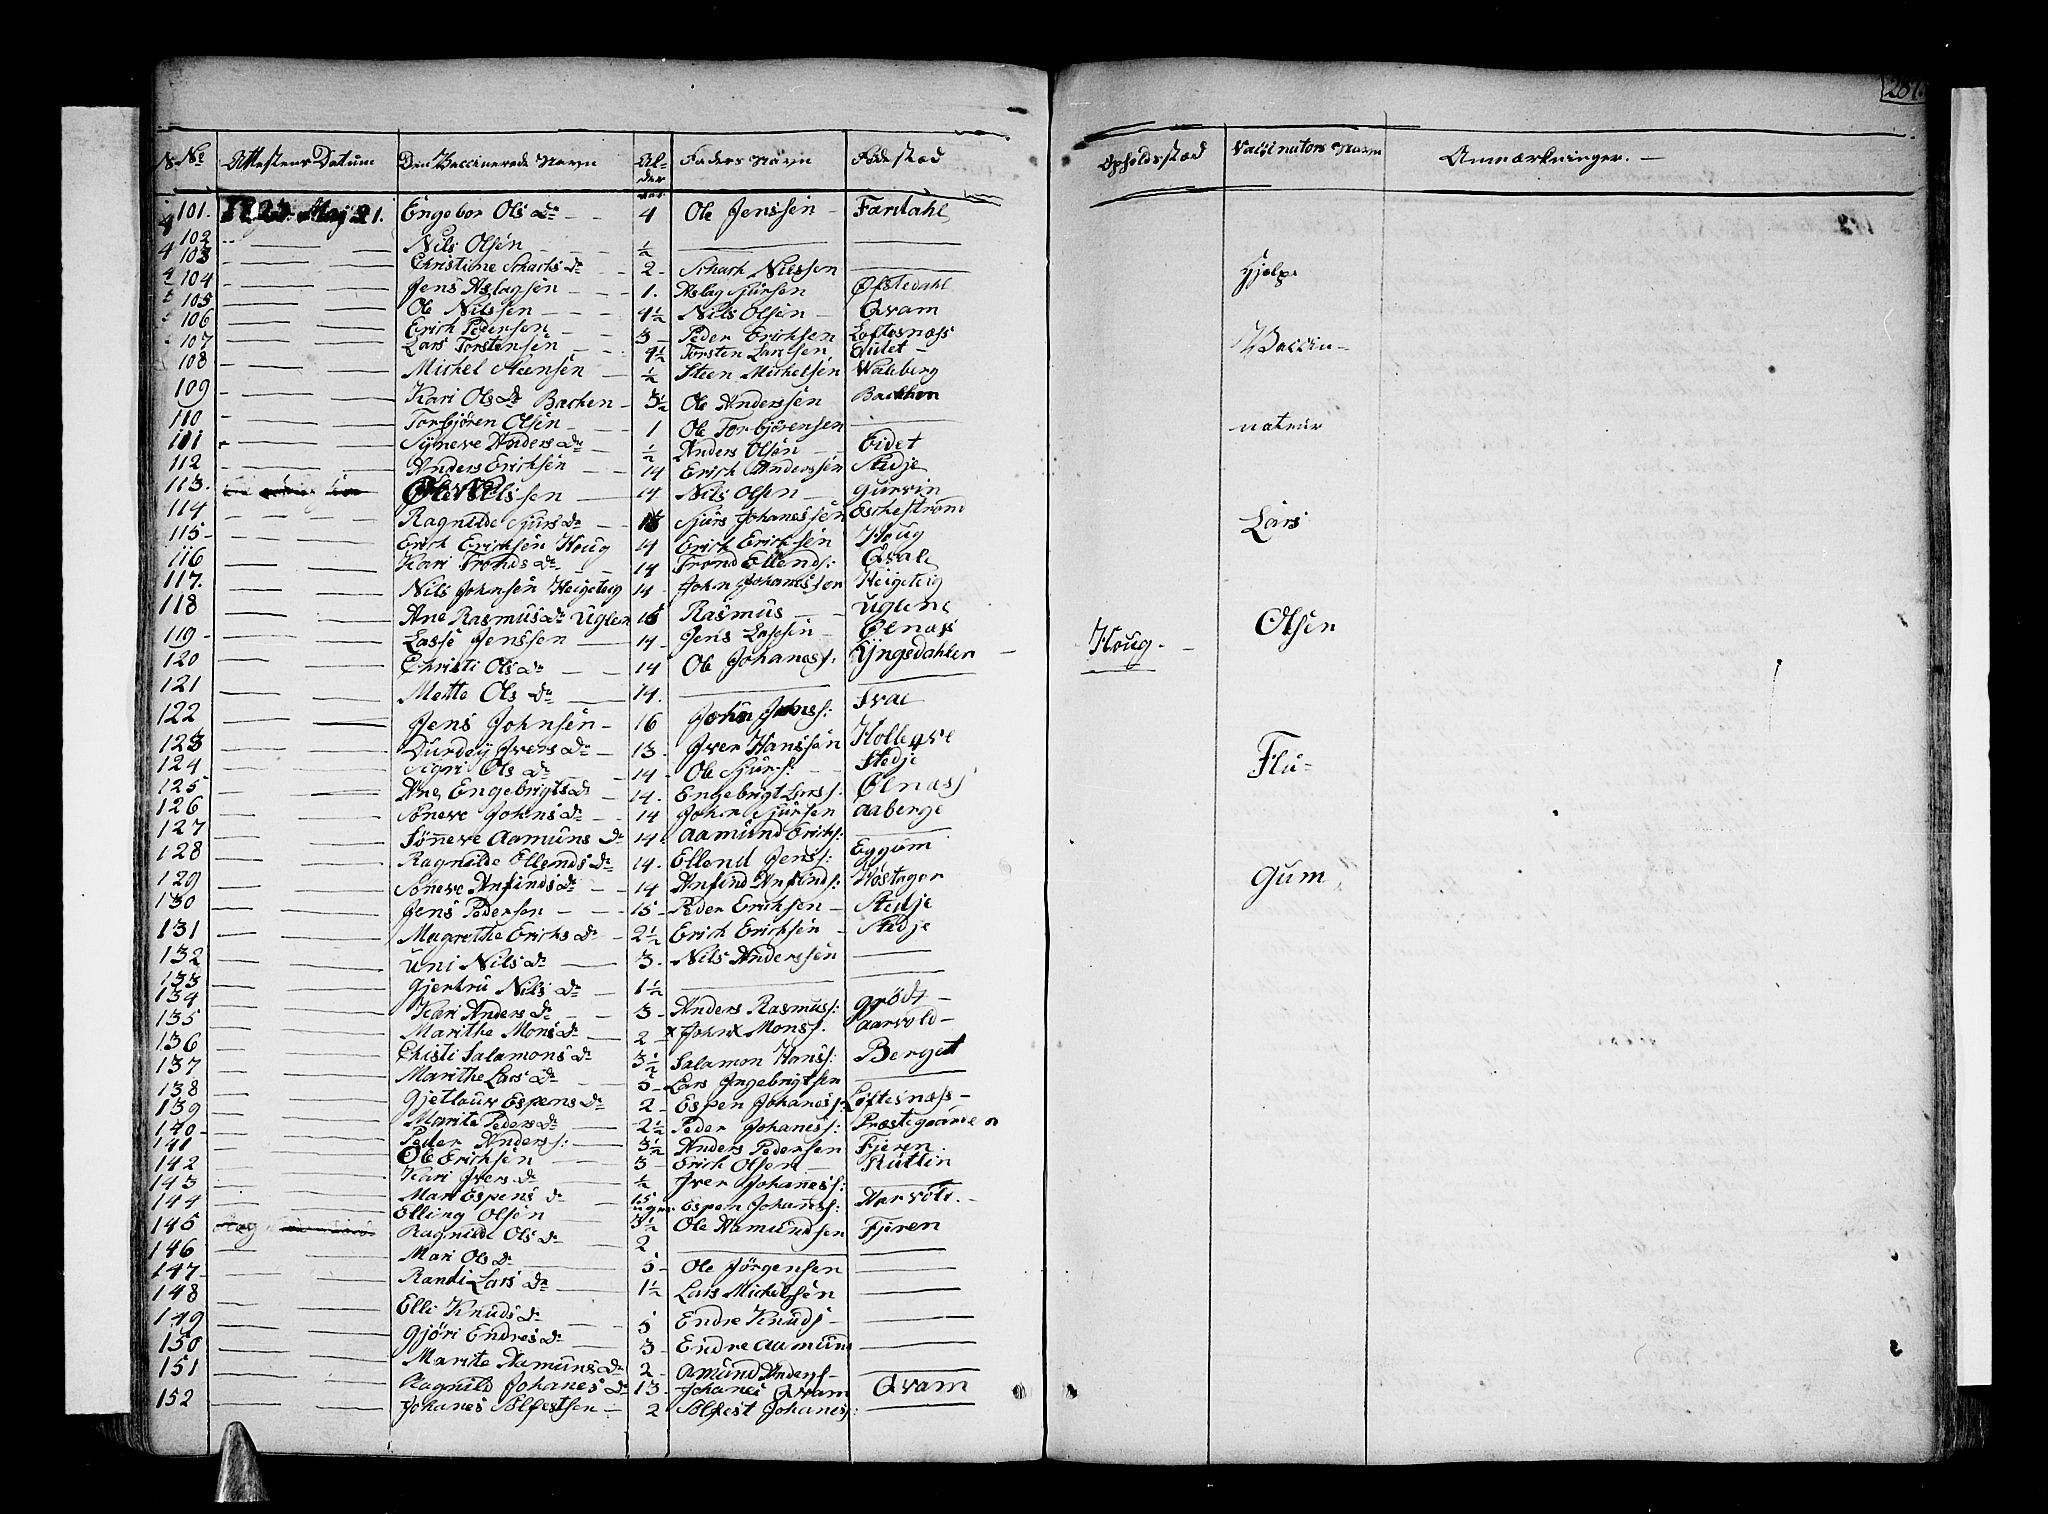 287.
No Attestens Datum Den Vaccineredes Navn Al-der Faders Navn Fødestæd Opholdsstæd Vaccinators Navn Anmærkninger. —
101. Maj 21. Engebor Ols Dr 4 Ole Jenssen Fardahl
102 Nils Olsen ½
103 Christine Scharhs Dr 2 Scharh Nielssen
104 Jens Aslagsen 1. Aslag Sjursen Øfstedahl Hjelpe
105 Ole Nilssen 4½ Nils Olsen Qvam
106 Erich Pedersen 3 Peder Erichsen Loftesnæss
107 Lars Torstensen 4½ Torsten Larssen Eidet Vaccin-
108 Michel Steensen ½ Steen Michelsen Waleberg
109 Kari Ols Dr Bachen 3½ Ole Anderssen Bachen
110 Torbjören Olsen 1 Ole Torbjörensen
111 Syneve Anders Dr ½ Anders Olsen Eidet nateur
112 Anders Erichsen 14 Erich Anderssen Stedje
113. Ole Nilssen 14 Nils Olsen Gurvin
114 Ragnilde Sjurs Dr Sjurs Johanessen Eschestrand Lars
115 Erich Erichsen Houg 14 Erich Erichsen Houg
116 Kari Tronds Dr 14 Trond Ellends: Qvale
117. Nils Johnsen Heigeteig 14 John Johanessen Heigeteig
118 Ane Rasmus Dr Uglen Rasmus Uglene
119 Lasse Jenssen 14 Jens Lassesen Ølnæss Houg. Olsen
120 Christi Ols Dr 14 Ole Johaness: Kyngsdahlen
121 Mette Ols Dr 14.
122 Jens Johnsen 16 John Jenss:
123 Durdey Ivers Dr 13 Iver Hanssen
124 Sigri Ols Dr 14 Ole Sjurs: Stedje Flu-
125 Ane Engebrigts Dr 14. Engebrigt Larss: Ølnæss
126 Söneve Johns Dr 14 John Sjursen Aaberge
127 Sönneve Aamuns Dr 14 Aamund Erichs:
128 Ragnilde Ellends Dr 14. Ellend Jenss: Eggum
129 Söneve Anfinds Dr 14 Anfind Anfinds: Høstager Gum
130 Jens Pedersen 15 Peder Erichsen Stedje
131 Magrethe Erichs Dr 2½ Erich Erichsen Stedje
132 Uni Nils Dr 3. Nils Anderssen
133 Gjertru Nils Dr 1½
134 Kari Anders Dr 3 Anders Rasmuss: Grödt
135 Marithe Mons Dr 2 John Monss. Aarvold
136 Christi Salamons Dr 3½ Salamon Hanss: Berget
137 Marithe Lars Dr 5 Lars Ingebrigtsen
138 Gjetlaur Espens Dr 2 Espen Johaness: Loftesnæss
139 Marite Peders Dr 2½ Peder Johaness: Præstegaarden
140 Peder Anderss: 3½ Anders Pedersen Fjæren
141 Ole Erichsen 3 Erich Olsen Kuttin
142 Kari Ivers Dr ½ Iver Johaness:
143 Mari Espens Dr 15 uger Espen Johaness: Aarvold.
144 Elling Olsen 3½ Ole Aamundsen Fjæren
145 Ragnilde Ols Dr 2
146 Mari Ols Dr 5 Ole Jörgensen
147 Randi Lars Dr 1½ Lars Michelsen
148 Elli Knuds Dr 5 Endre Knuds
149 Gjöri Endres Dr 3 Endre Aamund
150 Marite Aamuns Dr 2 Amund Anders
151 Ragnild Johanes Dr 13 Johanes Qvam Qvam
152 Johanes Solfestsen 2 Solfest Johaness: